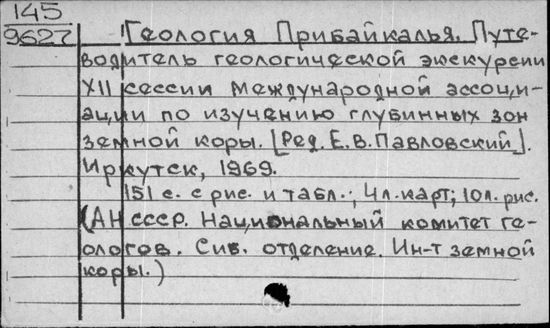 145
9627
Геология Прибайкалья. Путе-
водитель геологической экскурсии
XII сессии Международной ассоци-
ации по изучению глубинных зон
земной коры. [Ред. Е.В.Павловский].
Иркутск, 1969.
151 с. с рис. и табл.; 4л.карт; 10л.рис.
(АН СССР. Национальный комитет ге-
ологов. Сиб. отделение. Ин-т земной
коры.)